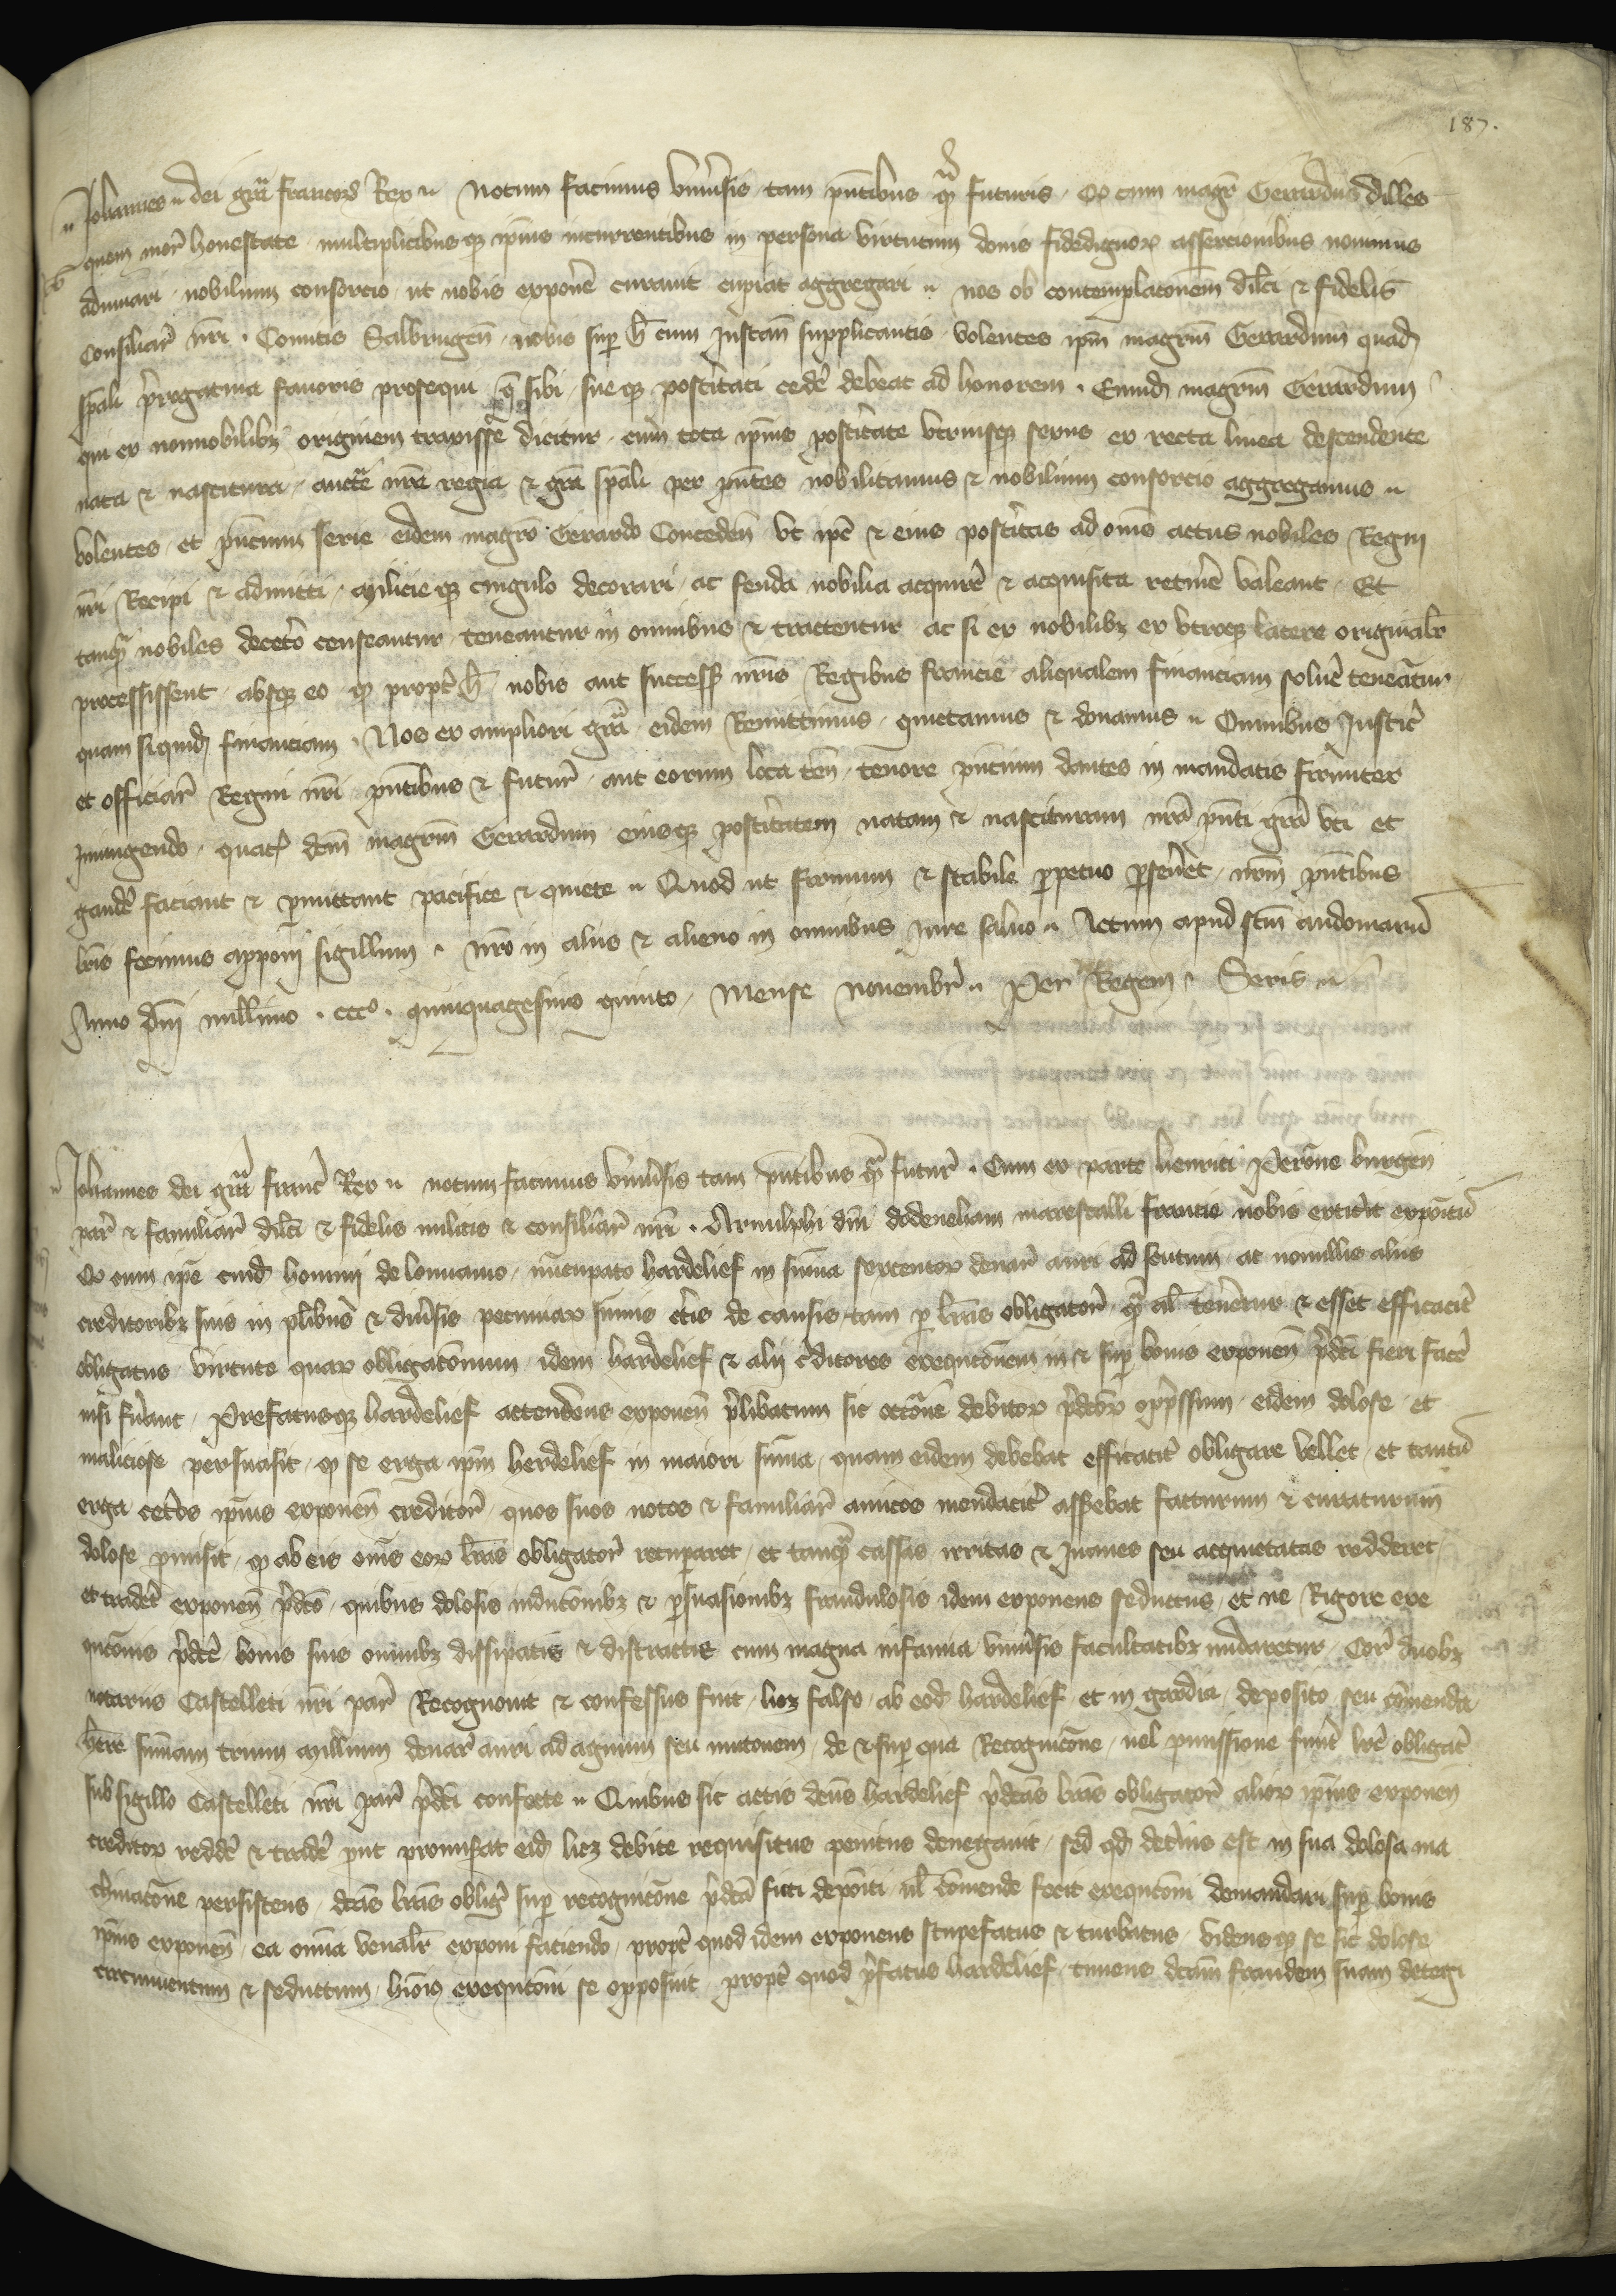 187.
Johannes dei gra francor Rex Notum facimus universis tam pntibus qm futuris Qd cum magr Gerardus dilles
quem mor honestate multiplicibusqz ipius incurrentibus in persona virtutum donis fidedignor assercionibus novimus
adiuvari nobilium consorcio ut nobis exponere curavit cupiat aggregari nos ob contemplaconem dilci & fidelis
Consiliar nri Comitis Salbrugen nobis sup h cum Instan supplicantis volentes ipm magrm Gerardum quad
spali prerogativa favoris prosequi q sibi sueqz posteritati cedere debeat ad honorem Eumd magrm Gerardum
qui ex innobilibz originem traxisse dicitur cum tota ipius posteritate utriusqz sexus ex recta linea descendente
nata & nascitura aucte nra regia & gra spali per pntes nobilitamus & nobilium consorcio aggregamus
Volentes et pncium serie eidem magro Gerardo Conceden ut ipe & eius posteritas ad omes actus nobiles Regni
nri Recipi & admitti milicieqz cingulo decorari ac feuda nobilia acquirere & acquisita retinere valeant Et
tanqm nobiles decetero censeantur teneantur in omnibus & tractentur ac si ex nobilibz ex utroqz latere originalr
processissent absqz eo qd propter h nobis aut success nris Regibus francie aliqualem financiam solvere teneantur
quam siquid financiam Nos ex ampliori gra eidem Remittimus quictamus & donamus Omnibus Justic
et officiar Regni nri pntibus & futur aut eorum loca ten tenore pncium dantes in mandatis firmiter
Iniungendo quat dcm magrm Gerardum eiusqz posteritatem natam & nascituram nra pnti gra uti et
gaudere faciant & permittant pacifice & quiete Quod ut firmum & stabile perpetuo perseveret nrm pntibus
lris fecimus apponi sigillum nro in aliis & alieno in omnibus iure salvo Actum apud scm audomaru
Anno dni millimo ccc quinquagesimo quinto Mense Novembr Per Regem Seris
Johannes dei gra franc Rex notum facimus universis tam pntibus qm futur Cum ex parte henrici Perone burgen
par & familiar dilci & fidelis militis & consiliar nri Arnulphi dni dodeneham marescalli francie nobis extiterit expoitu
Qd cum ipe cuid homini de lovanio nucupato hardelief in suma sexcentor denar auri ad scutum ac nonnullis aliis
creditoribz suis in pluribus & diversis pecuniar sumis certis de causis tam per lras obligator qm al teneretur & esset efficaciter
obligatus virtute quar obligaconum idem hardelief & alij creditores execuconem in & sup bonis exponen predci fieri facere
nisi fuerant Prefatusqz hardelief attendens exponen prelibatum sic occone debitor predcor oppressum eidem dolose et
maliciose persuasit qd se erga ipm herdelief in maiori suma quam eidem debebat efficaciter obligare vellet et tantu
erga ceteros ipius exponen creditor quos suos notos & familiar amicos mendaciter asserebat facturum & curaturum
dolose promisit qd ab eis omes eor lras obligator recuperaret et tanqm cassas irritas & Inanes seu acquictatas redderet
et traderet exponen predco quibus dolosis induconibz & persuasionibz fraudulosis idem exponens seductus et ne Rigore exe
cucois predce bonis suis omnibz dissipatis & distractis cum magna infamia universis facultatibz nudaretur Cor duobz
notariis Castelleti nri par Recognovit & confessus fuit licz falso ab eod hardelief et in gardia deposito seu comenda
here sumam trium millium denar auri ad agnum seu mutonem de & sup qua Recognicone vel promissione fuer lre obligat
sub sigillo Castelleti nri par predci confecte Quibus sic actis dcus hardelief predcas lras obligator alior ipius exponen
creditor reddere & tradere put promiserat eid licz debite requisitus penitus denegavit sed qd deterius est in sua dolosa ma
chinacone persistens dcas lras oblig sup recognicone predca ficti depositi vl comende fecit execucoi demandari sup bonis
ipius exponen ea omia venalr exponi faciendo propter quod idem exponens stupefatus & turbatus vidensqz se sic dolose
circumventum & seductum huiois execucoi se opposuit propter quod prefatus hardelief timens dcam fraudem suam detegi